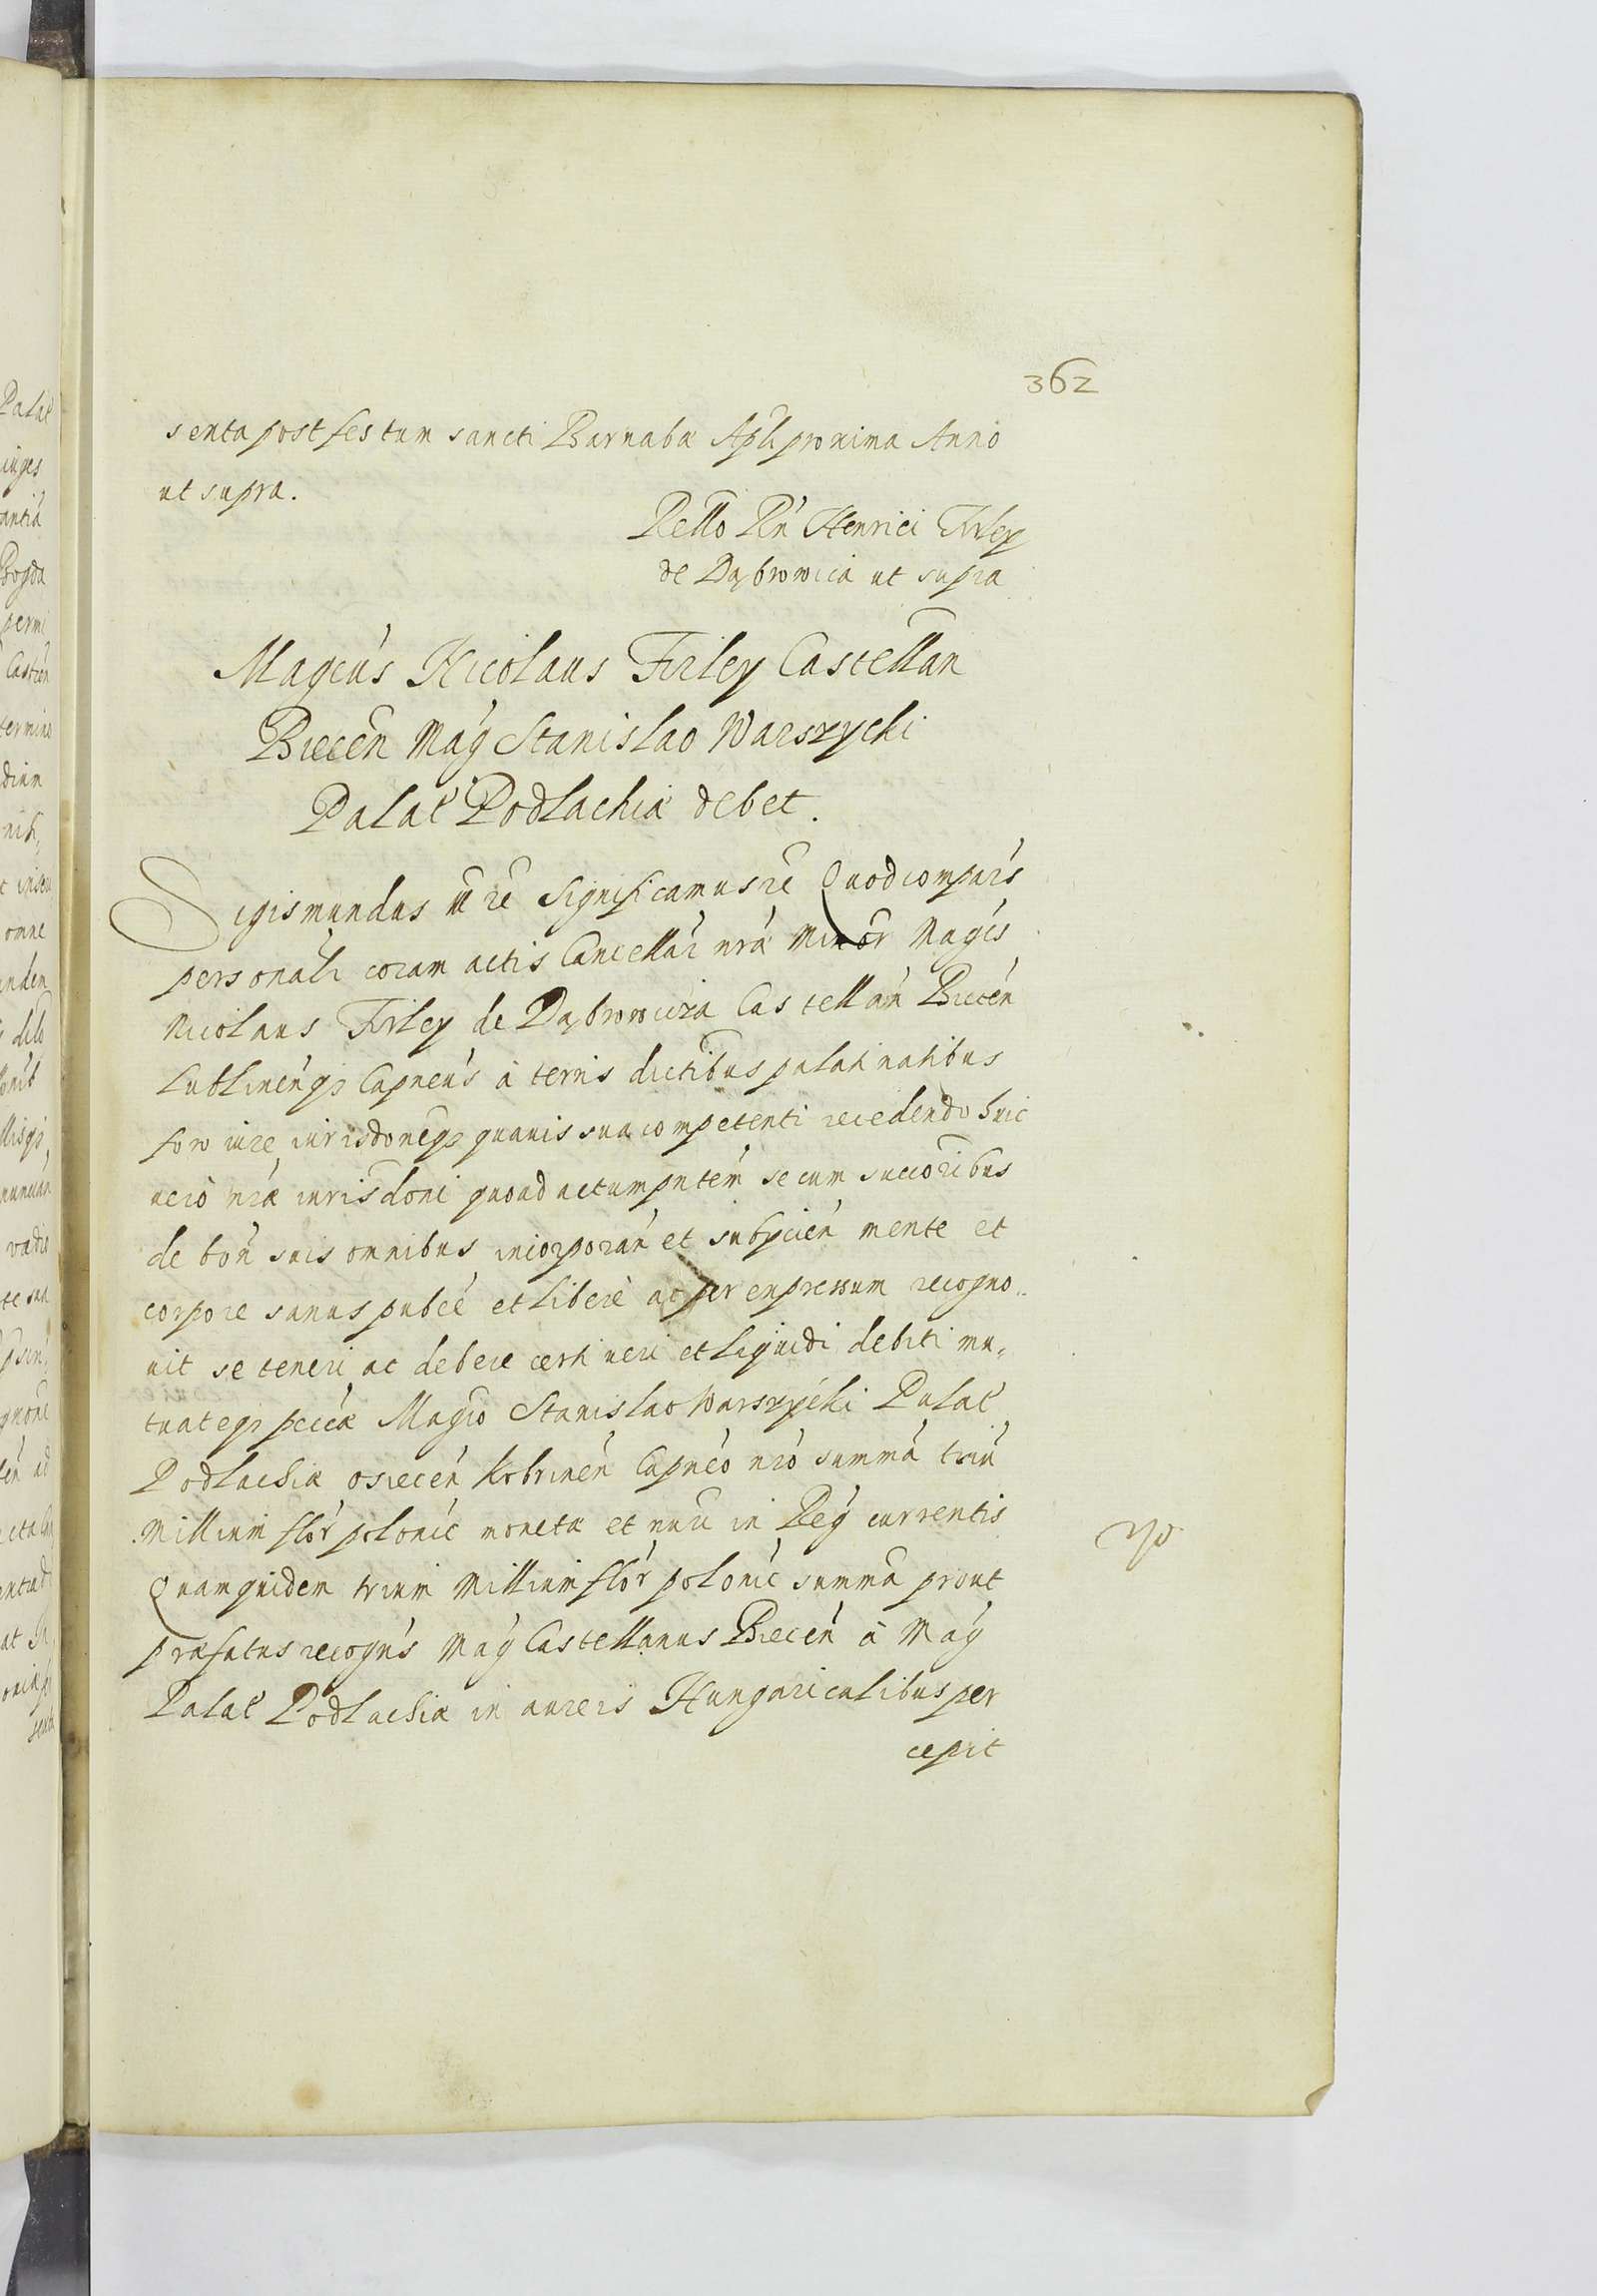 362
sexta post festum sancti Barnabæ Apli proxima Anno
ut supra.
Rello Rń Henrici Firley
de Dąbrowica ut supra
Magcus Nicolaus Firley Castellan
Biecen Mag Stanislao Warszycki
Palat Podlachiæ debet.
Sigismundus III etc Significamus etc Quod comparś
personalr coram actis Cancellar nræ Minor Magcs
Nicolaus Firley de Dąbrowicza Castellan Biecen
Lublinenqz Capneus à terris districtibus palatinatibus
foro iure iurisdoneqz quavis sua competenti recedendo huic
vero nræ iurisdoni quoad actum pntem se cum succoribus
de bon suis omnibus incorporan et subycien mente et
corpore sanus publce et libere ac per expressum recogno
uit se teneri ac debere certi veri et liquidi debiti mu
tuateqz pccæ Magco Stanislao Warszycki Palat
Podlachiæ Osiecen Kobrinen Capneo nro summa triu
Millium flor polonic moneta et nuu in Reg currentis
Quamquidem trium Millium flor polonic summa prout
præfatus recogns Mag Castellanus Biecen à Mag
Palat Podlachiæ in aureis Hungaricalibus per
cepit